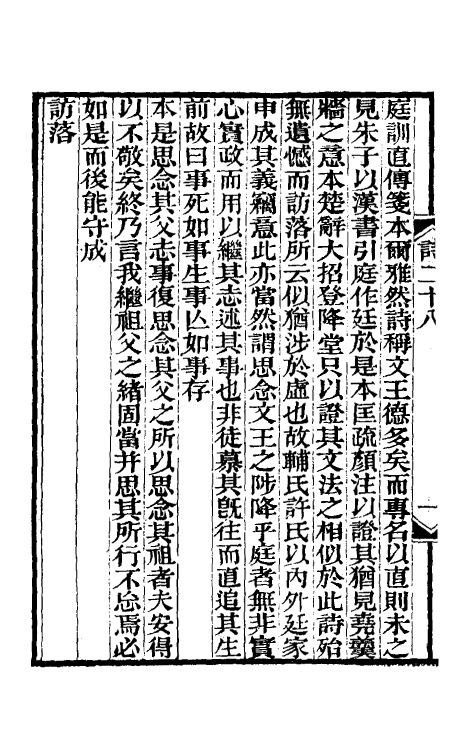 庭訓直傳箋本爾雅然詩稱文王德多矣而專名以直則未之
見朱子以漢書引庭作廷於是本匡疏顏注以證其猶見堯羹
牆之意本楚辭大招登降堂只以證其文法之相似於此詩殆
無遺憾而訪落所云似猶涉於虛也故輔氏許氏以內外廷家
申成其義竊意此亦當然謂思念文王之陟降乎庭者無非實
心實政而用以繼其志述其事也非徒慕其旣往而直追其生
前故曰事死如事生事亾如事存
本是思念其父志事復思念其父之所以思念其祖者夫安得
以不敬矣終乃言我繼祖父之緒固當并思其所行不忘焉必
如是而後能守成
訪落
詩二十八
一